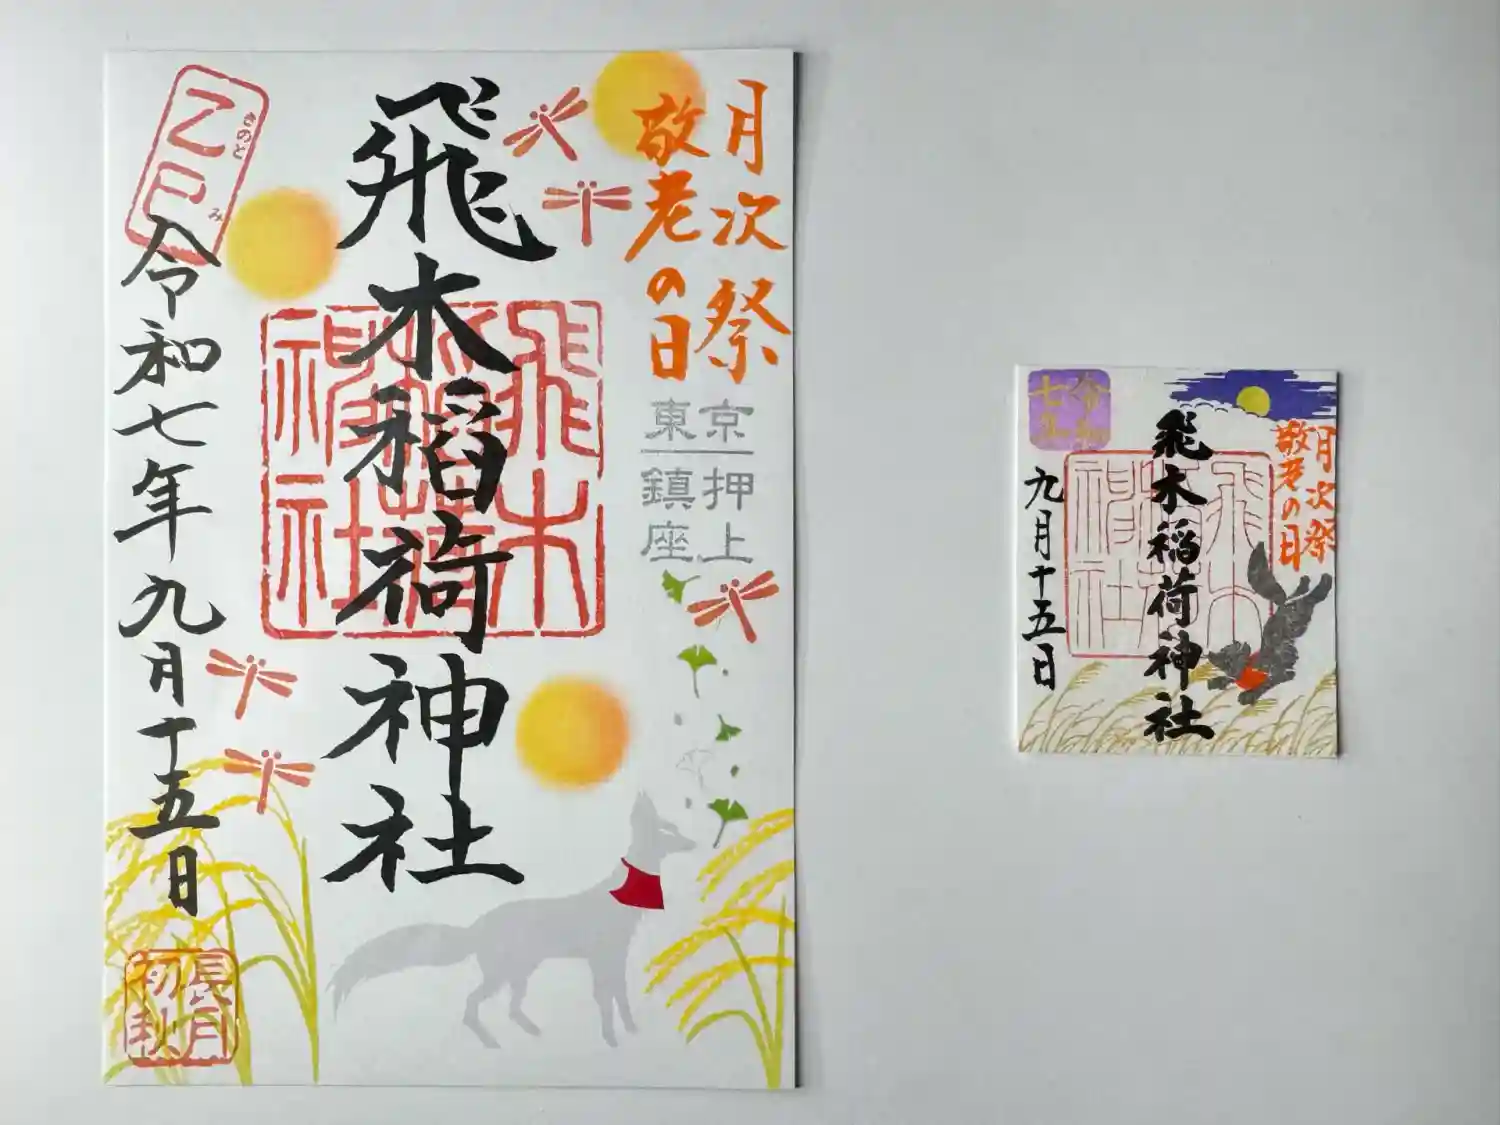 月次祭
敬老の日
京押上
東鎮座
飛木稲荷神社
飛木
稲荷
神社
乙巳
きのと
み
令和七年九月十五日
長月
初秋
月次祭
敬老の日
飛木稲荷神社
飛木
稲荷
神社
令和
七年
九月十五日